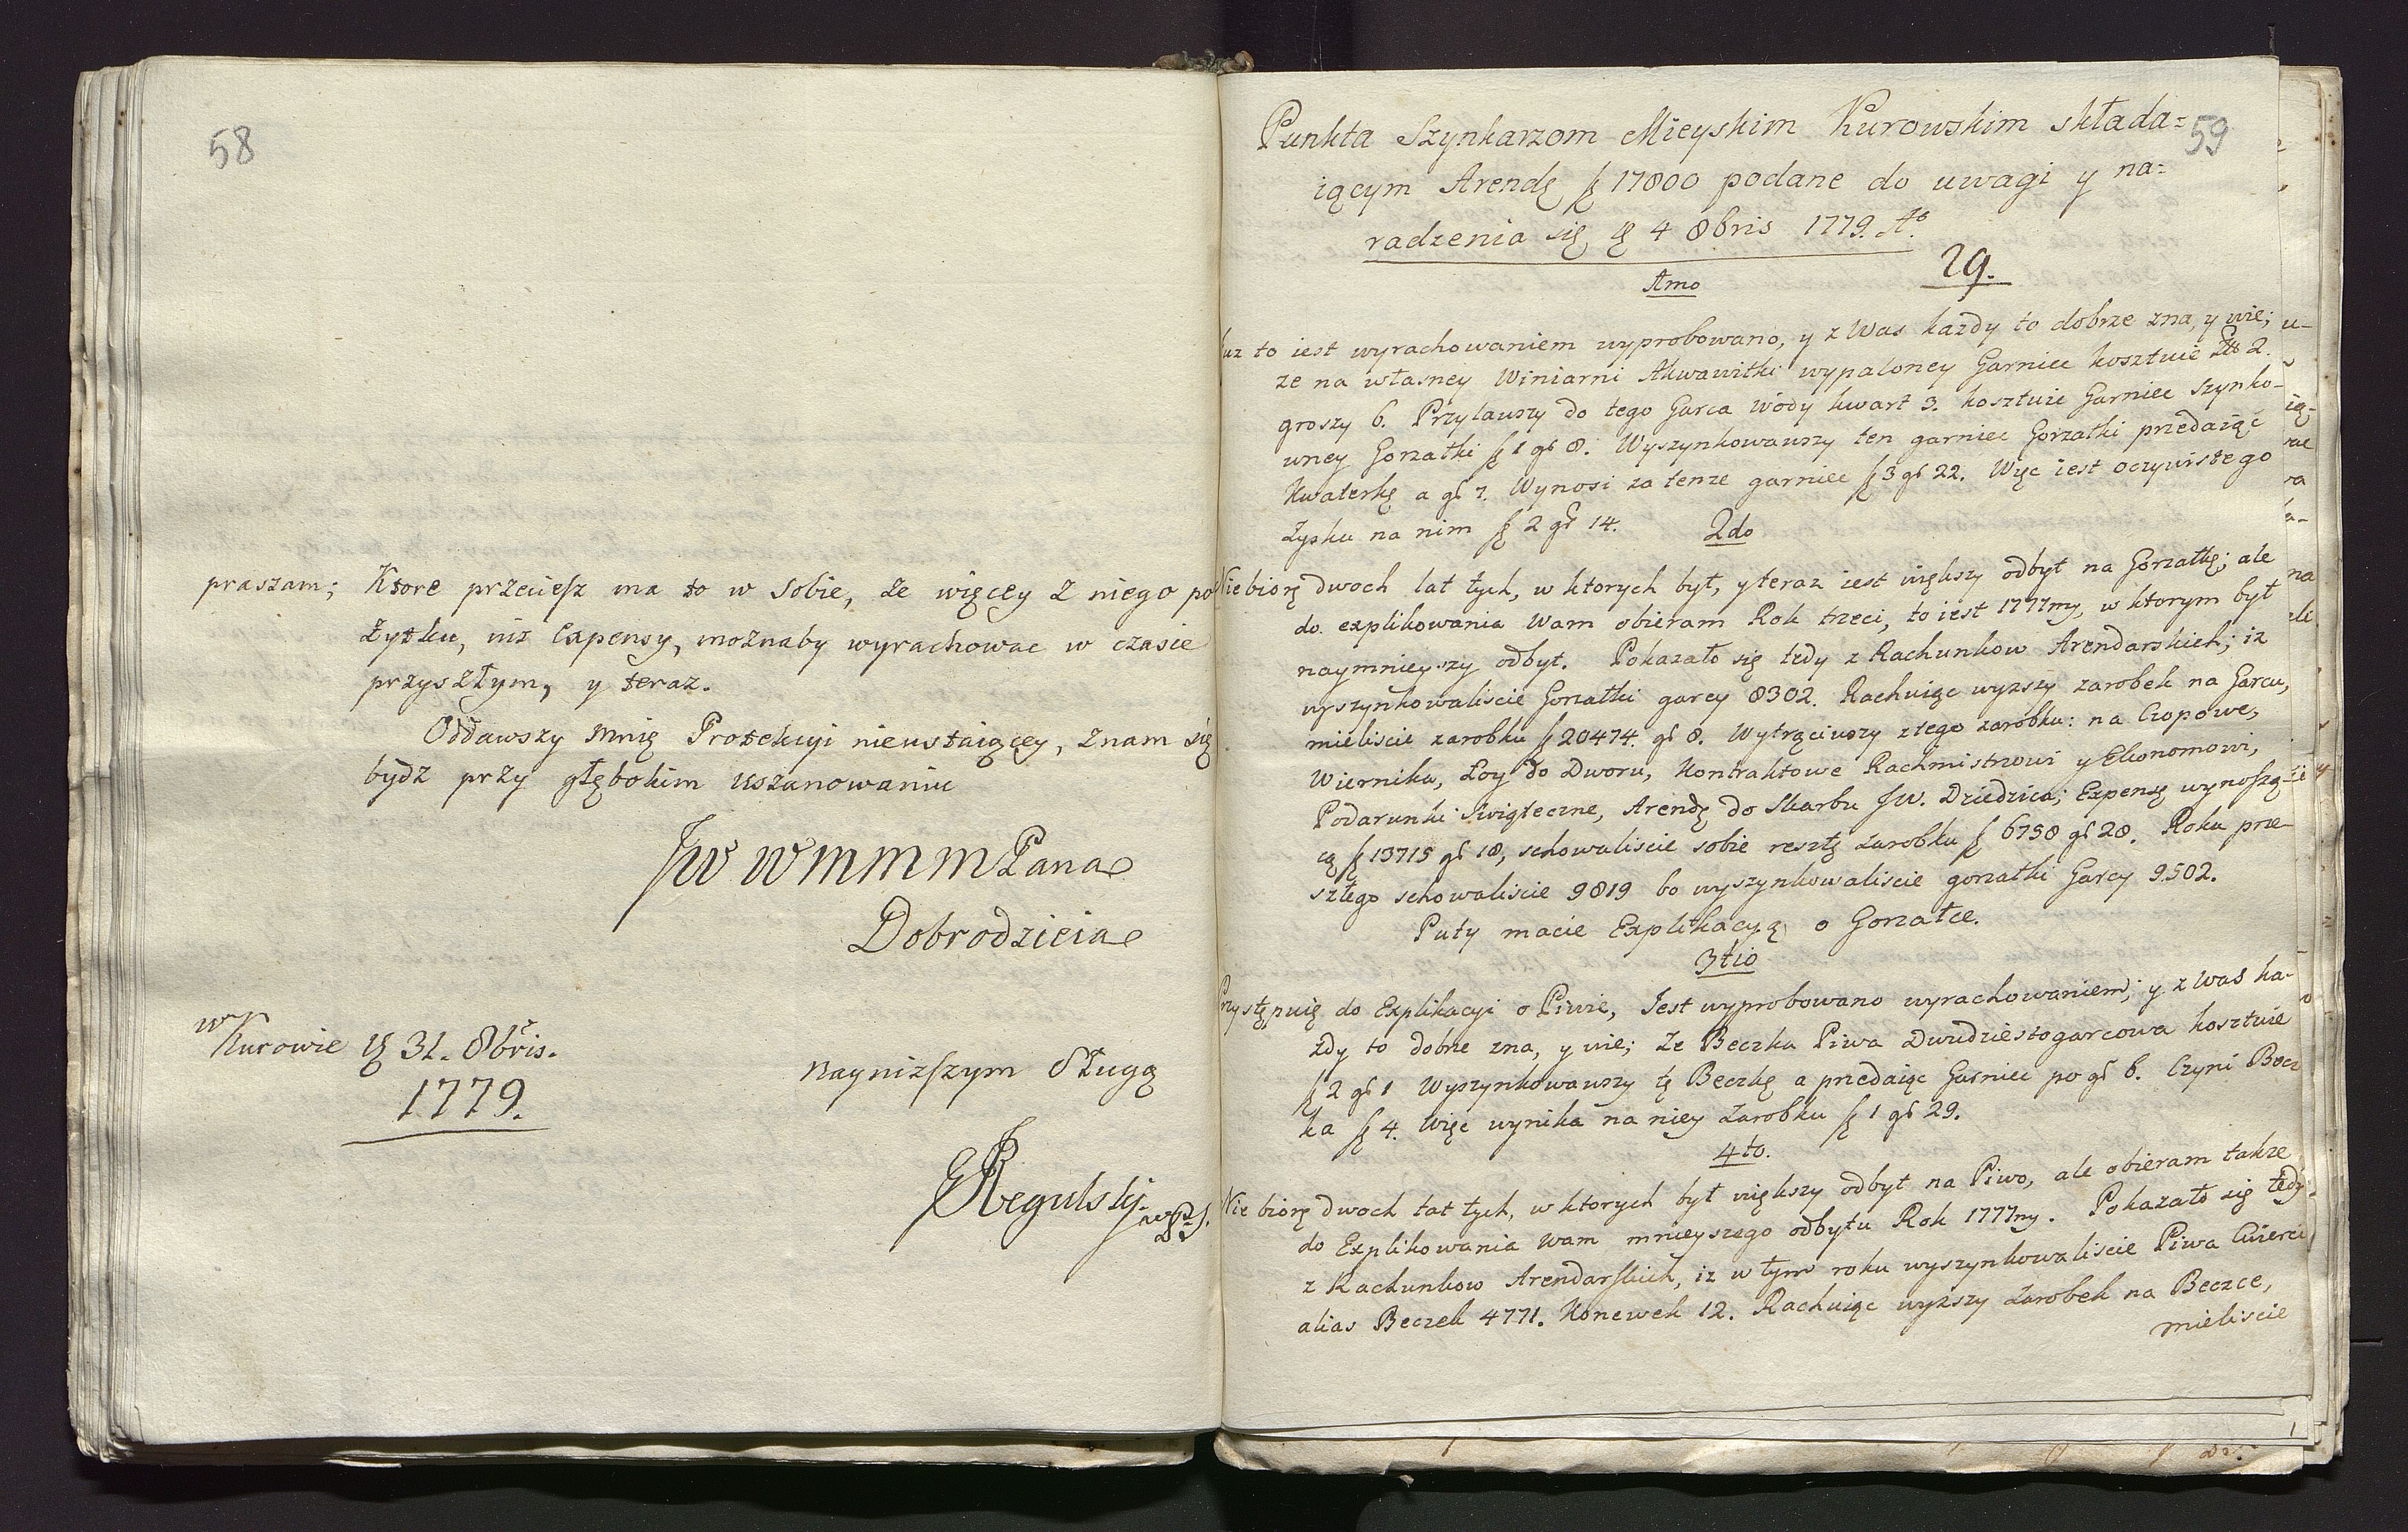 58
praszam; Ktore przecież ma to w sobie, że więcey z niego po
żytku, niż Expensy, możnaby wyrachowac w czasie
przyszłym, y teraz.
Oddawszy mnię Protekcyi nieustaiącey, znam się
bydz przy głębokim uszanowaniu
JW WMMM Pana
Dobrodzieia
w Kurowie 31. 8bris.
1779.
nayniższym sługą
Regulski
59
Punkta Szynkarzom Mieyskim Kurowskim składa=
iącym Arendę 17800 podane do uwagi y na=
radzenia się 4 8bris 1779. Ao
29.
1mo
Juz to iest wyrachowaniem wyprobowano, y z Was kazdy to dobrze zna, y wie;
ze na własney Winiarni Akwawitki wypaloney Garniec kosztuie 2.
groszy 6. Przylawszy do tego Garca wody kwart 3. kosztuie Garniec szynko-
wney Gorzałki 1 gł 8. Wyszynkowawszy ten garniec Gorzałki przedaiąc
Kwaterkę a gł 7. Wynosi za tenze garniec 3 gł 22. Więc iest oczywistego
Zysku na nim 2 gł 14.
2do
Nie biorę dwoch lat tych, w ktorych był, y teraz iest większy odbyt na Gorzałkę; ale
do explikowania Wam obieram Rok trzeci, to iest 1777my, w ktorym był
naymnieyszy odbyt. Pokazało się tedy z Rachunkow Arendarskich; iz
wyszynkowaliscie Gorzałki garcy 8302. Rachuiąc wyzszy zarobek na Garcu,
mieliscie zarobku 20474. gł 8. Wytrąciwszy z tego zarobku: na Czopowe,
Wiernika, Łoy do Dworu, Kontraktowe Rachmistrzowi y Ekonomowi,
Podarunki swięteczne, Arendę do Skarbu JW. Dziedzica; Expensę wynoszą-
cą 13715 gł 18, schowaliscie sobie resztę zarobku 6758 gł 20. Roku prze-
szłego schowaliscie 9819 bo wyszynkowaliscie gorzałki Garcy 9502.
Puty macie Explikacyą o Gorzałce.
3tio
Przystępuię do Explikacyi o Piwie, Jest wyprobowano wyrachowaniem; y z Was ka-
zdy to dobrze zna, y wie; ze Beczka Piwa Dwudziestogarcowa kosztuie
2 gł 1 Wyszynkowawszy tę Beczkę a przedaiąc Garniec po gł 6. Czyni Becz
ka 4. Więc wynika na niey zarobku 1 gł 29.
4to.
Nie biorę dwoch lat tych, w ktorych był większy odbyt na Piwo, ale obieram takze
do Explikowania Wam mnieyszego odbytu Rok 1777my. Pokazało się tedy
z Rachunkow Arendarskich, iz w tym roku wyszynkowaliscie Piwa Cwierci
alias Beczek 4771. Konewek 12. Rachuiąc wyzszy zarobek na Beczce,
mieliscie